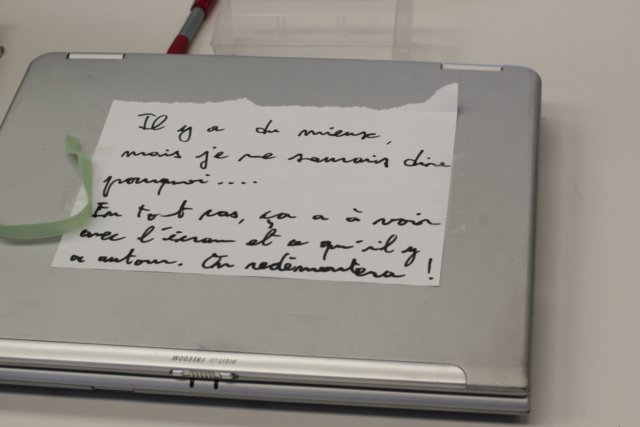 Il y a du mieux,
mais je ne saurais dire
pourquoi....
En tout cas, ça a à voir
avec l'écran et ce qu'il y
a autour. On redémontera !
DIGITall FREEDOM